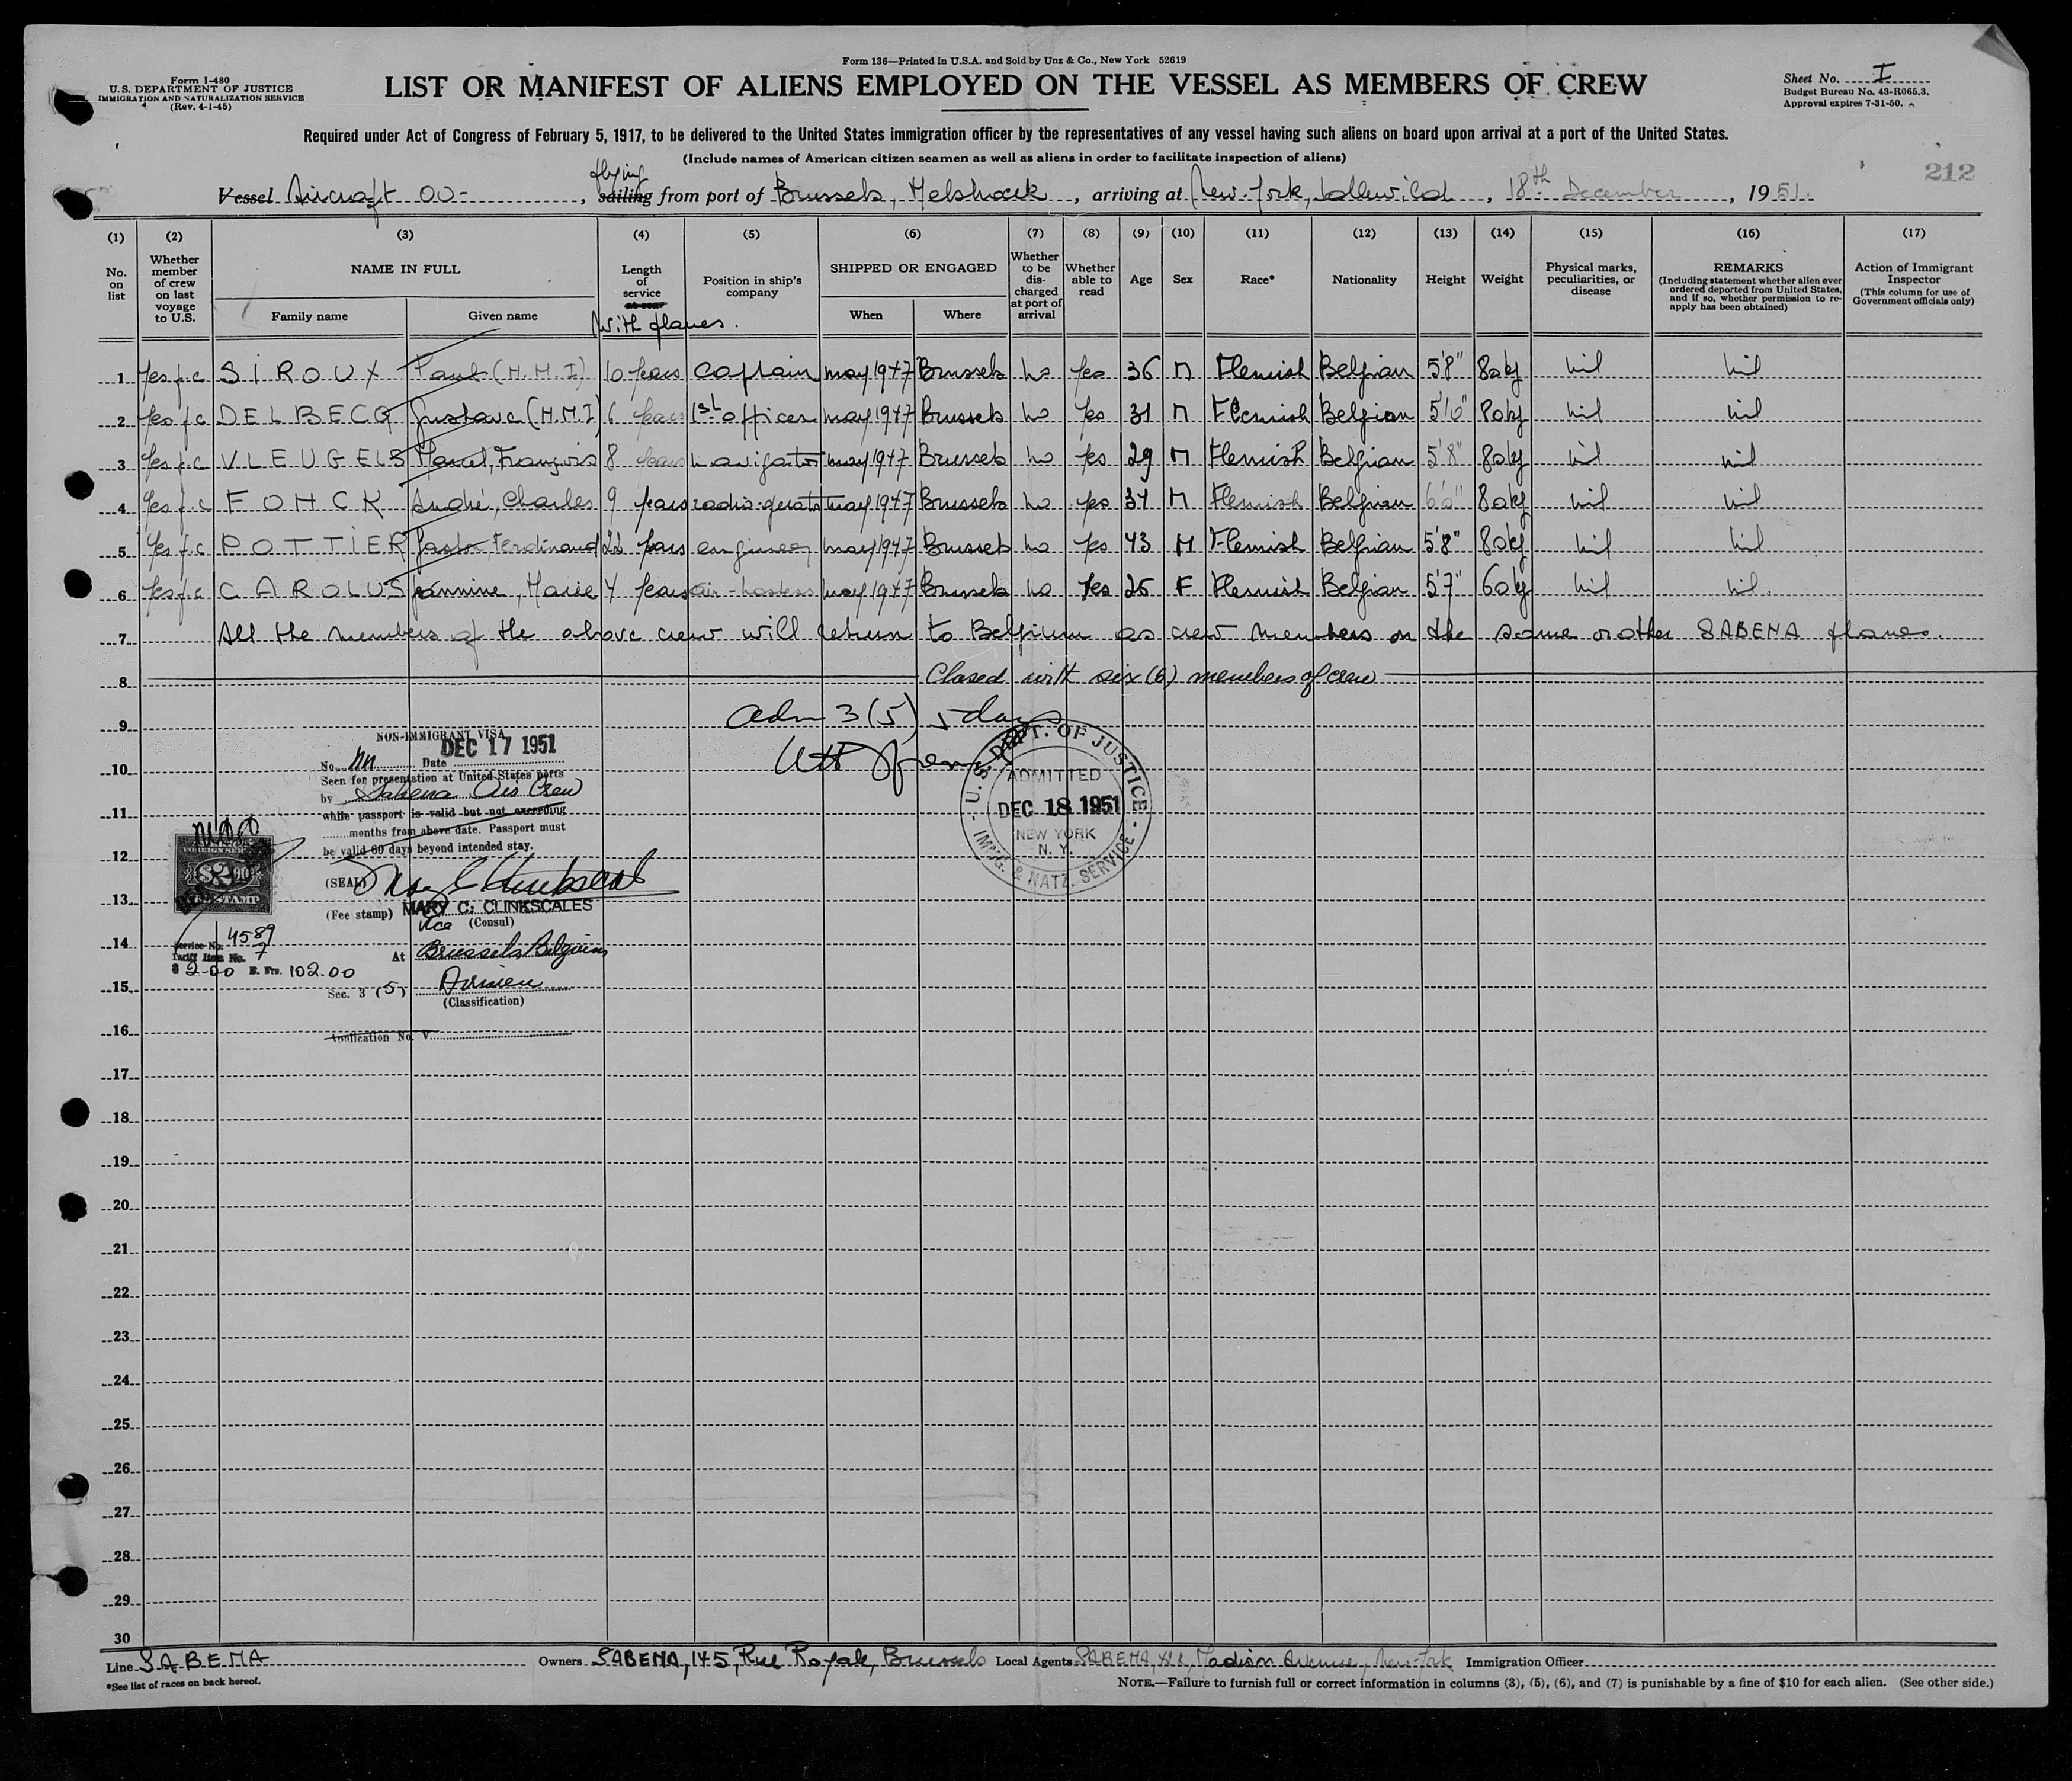 Form I-480
U.S. DEPARTMENT OF JUSTICE
IMMIGRATION AND NATURALIZATION SERVICE
(Rev. 4-1-45)
Form 136—Printed in U.S.A. and Sold by Unz & Co., New York 52619
LIST OR MANIFEST OF ALIENS EMPLOYED ON THE VESSEL AS MEMBERS OF CREW
Sheet No. I
Budget Bureau No. 43-R065.3.
Approval expires 7-31-50.
Required under Act of Congress of February 5, 1917, to be delivered to the United States immigration officer by the representatives of any vessel having such aliens on board upon arrival at a port of the United States.
(Include names of American citizen seamen as well as aliens in order to facilitate inspection of aliens)
212
flying
Vessel Aircraft OO- , sailing from port of Brussels, Melsbroek , arriving at New-York, Idlewild , 18th December , 1951.
(1) (2) (3) (4) (5) (6) (7) (8) (9) (10) (11) (12) (13) (14) (15) (16) (17)
No. on list
Whether member of crew on last voyage to U.S.
NAME IN FULL
Family name
Given name
Length of service at sea
with planes.
Position in ship's company
SHIPPED OR ENGAGED
When
Where
Whether to be discharged at port of arrival
Whether able to read
Age
Sex
Race*
Nationality
Height
Weight
Physical marks, peculiarities, or disease
REMARKS
(Including statement whether alien ever ordered deported from United States, and if so, whether permission to reapply has been obtained)
Action of Immigrant Inspector
(This column for use of Government officials only)
1 Yes f.c SIROUX Paul (M.M.I) 10 years Captain may 1947 Brussels no yes 36 M Flemish Belgian 5'8" 80kg nil nil
2 Yes f.c DELBECQ Gustave (M.M.I) 6 years 1st officer may 1947 Brussels no yes 31 M Flemish Belgian 80kg nil nil
3 Yes f.c VLEUGELS Marcel, François 8 years navigator may 1947 Brussels no yes 29 M Flemish Belgian 5'8" 80kg nil nil
4 Yes f.c FONCK André, Charles 9 years radio-operator may 1947 Brussels no yes M Flemish Belgian 6'0" 80kg nil nil
5 Yes f.c POTTIER Gaston Ferdinand 22 years engineer may 1947 Brussels no yes 43 M Flemish Belgian 5'8" 80kg nil nil
6 Yes f.c CAROLUS Jeannine, Marie 4 years air-hostess may 1947 Brussels no yes F Flemish Belgian 5'7" 60kg nil nil.
7 All the members of the above crew will return to Belgium as crew members on the same or other SABENA planes.
8 Closed with six (6) members of crew
9 adm 3(5) 5 days
10
11
12
13
14
15
16
17
18
19
20
21
22
23
24
25
26
27
28
29
30
NON-IMMIGRANT VISA
No. Date DEC 17 1951
Seen for presentation at United States ports
by Sabena Air Crew
while passport is valid but not exceeding
months from above date. Passport must
be valid 60 days beyond intended stay.
(SEAL) Mary C Clinkscales
(Fee stamp) MARY C. CLINKSCALES
Vice (Consul)
At Brussels Belgium
Sec. 3 (5)
(Classification)
Application No. V
$2.00
Service No. 4589
Tariff Item No. 7
$ 2.00 B. Frs. 102.00
U.S. DEPT. OF JUSTICE
ADMITTED
DEC 18 1951
NEW YORK
N. Y.
IMMG. & NATZ. SERVICE
Line SABENA Owners SABENA, 145, Rue Royale, Brussels Local Agents SABENA, Madison Avenue, New-York Immigration Officer
*See list of races on back hereof.
NOTE.—Failure to furnish full or correct information in columns (3), (5), (6), and (7) is punishable by a fine of $10 for each alien. (See other side.)